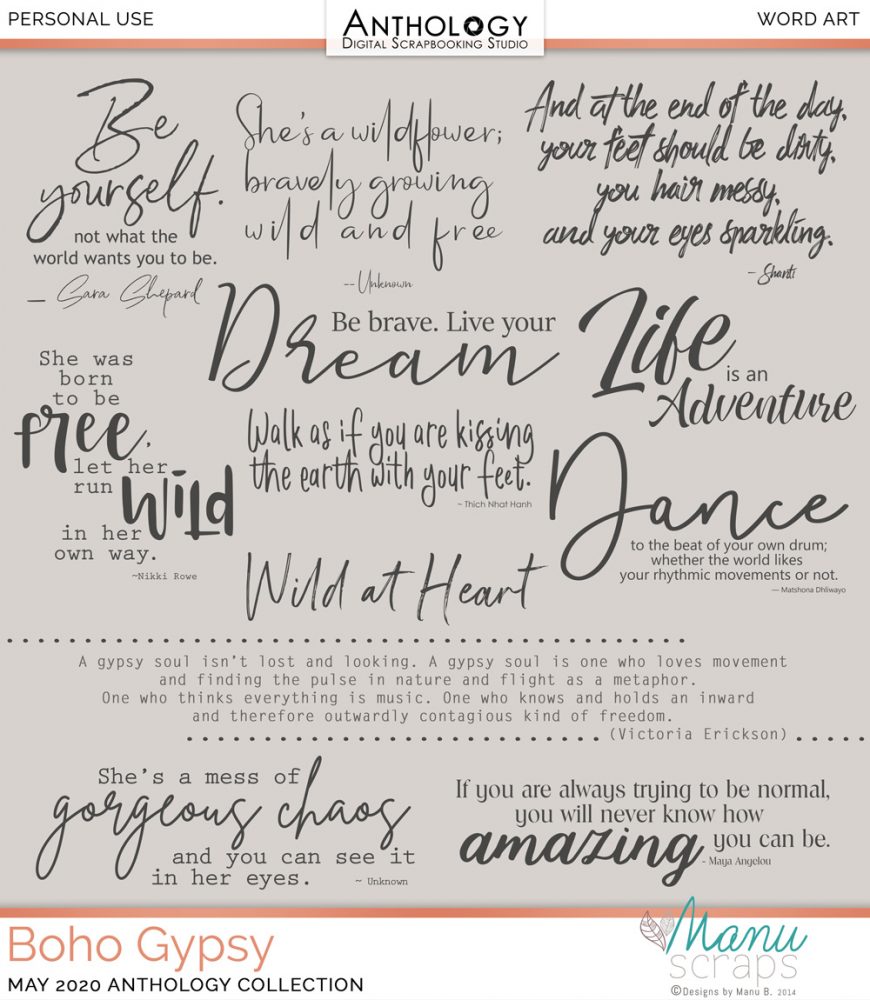 PERSONAL USE
ANTHOLOGY
DIGITAL SCRAPBOOKING STUDIO
WORD ART
Be
yourself.
not what the
world wants you to be.
— Sara Shepard
She's a wildflower;
bravely growing
wild and free
--Unknown
And at the end of the day,
your feet should be dirty,
you hair messy,
and your eyes sparkling.
- Shanti
Be brave. Live your
Dream
Life
is an
Adventure
She was
born
to be
free,
let her
run wild
in her
own way.
~Nikki Rowe
Walk as if you are kissing
the earth with your feet.
~ Thich Nhat Hanh
Dance
to the beat of your own drum;
whether the world likes
your rhythmic movements or not.
— Matshona Dhliwayo
Wild at Heart
A gypsy soul isn't lost and looking. A gypsy soul is one who loves movement
and finding the pulse in nature and flight as a metaphor.
One who thinks everything is music. One who knows and holds an inward
and therefore outwardly contagious kind of freedom.
(Victoria Erickson)
She's a mess of
gorgeous chaos
and you can see it
in her eyes.
~ Unknown
If you are always trying to be normal,
you will never know how
amazing you can be.
- Maya Angelou
Boho Gypsy
MAY 2020 ANTHOLOGY COLLECTION
Manu
scraps
©Designs by Manu B. 2014